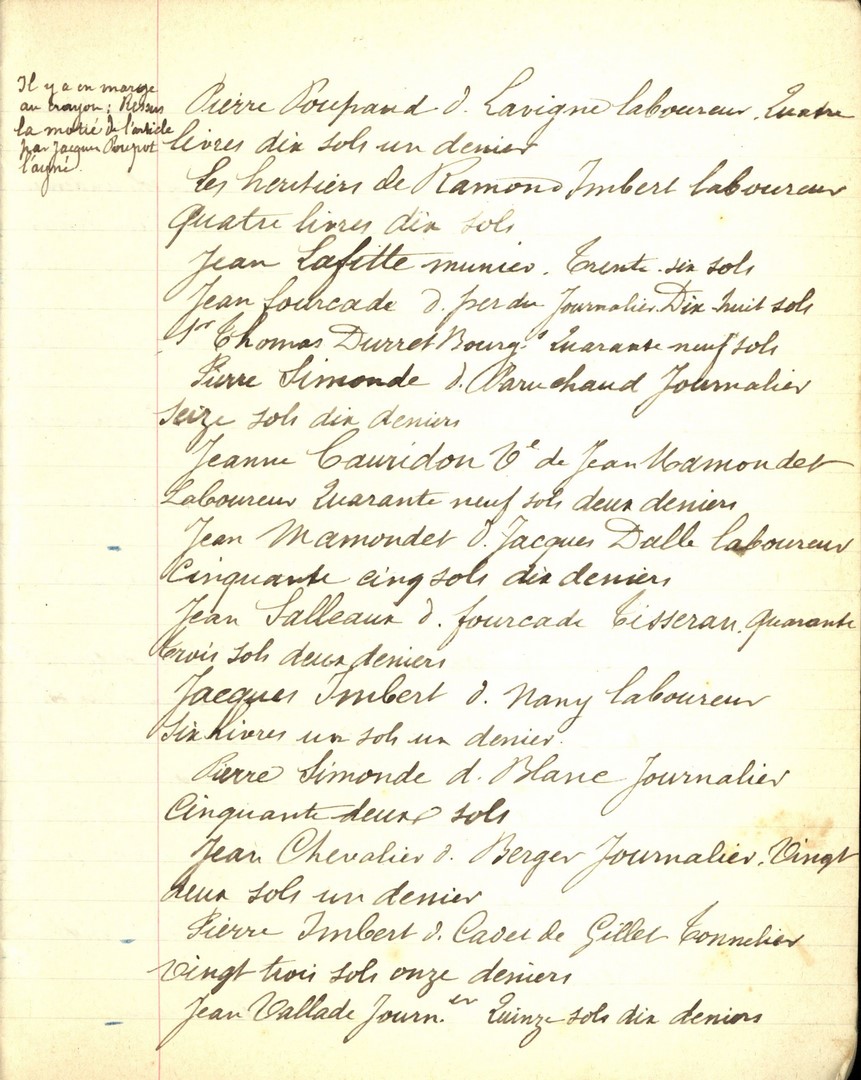 Il y a en marge
au crayon; Ressus
la motié de l'article
par Jacques Poupot
l'ayné.
Pierre Poupaud d. Lavigne laboureur. Quatre
livres dix sols un denier
Les heritiers de Ramond Imbert laboureur
Quatre livres dix sols
Jean Lafitte munier. Trente-six sols
Jean fourcade d. perdu Journalier. Dix-huit sols
Sr Thomas Durret Bourg.s Quarante neuf sols
Pierre Simonde d. Journalier
seize sols dix deniers
Jeanne Cauridon Ve de Jean Mamondet
Laboureur Quarante neuf sols deux deniers
Jean Mamondet d. Jacques Dalle laboureur
Cinquante cinq sols dix deniers
Jean Salleaux d. fourcade Tisseran. Quarante
trois sols deux deniers
Jacques Imbert d. Nany laboureur
Six livres un sols un denier.
Pierre Simonde d. Blanc Journalier
Cinquante deux sols
Jean Chevalier d. Berger Journalier. Vingt
deux sols un denier
Pierre Imbert d. Cadet de Gillet Tonnelier
Vingt trois sols onze deniers
Jean Vallade Journ.er Quinze sols dix deniers